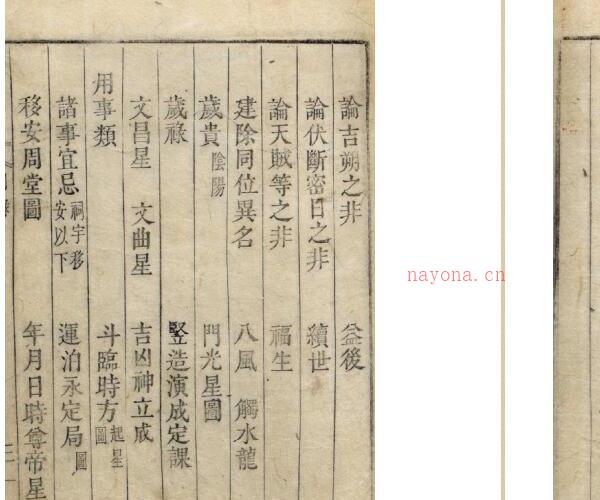 論吉朔之非 益後
論伏斷密日之非 續世
論天賊等之非 福生
建除同位異名 八風 觸水龍
歲貴 陰陽 門光星圖
歲祿 竪造演成定課
文昌星 文曲星 吉凶神立成
用事類 斗臨時方 起星圖
諸事宜忌 祠宇移安以下 運泊永定局 圖
移安周堂圖 年月日時尊帝星
nayona.cn